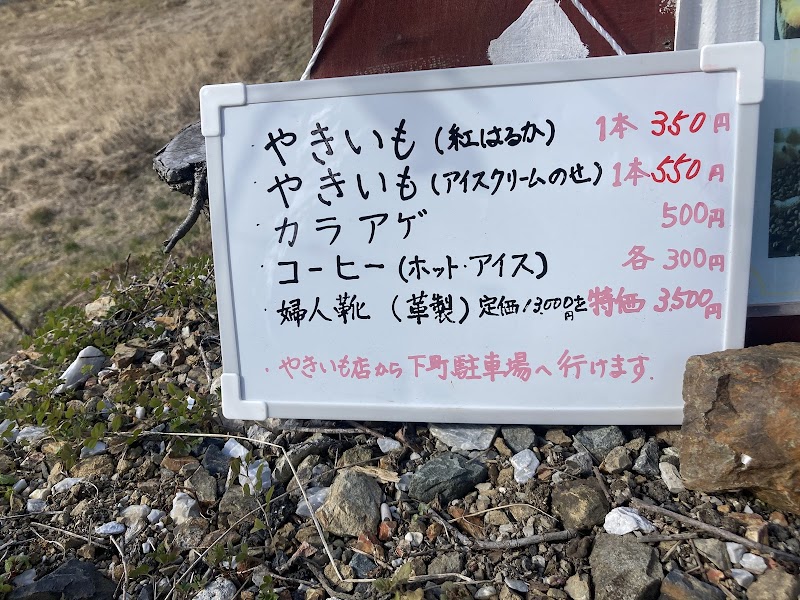 ・やきいも(紅はるか) 1本 350円
・やきいも(アイスクリームのせ) 1本 550円
・カラアゲ 500円
・コーヒー(ホット・アイス) 各 300円
・婦人靴(革製)定価13,000円を特価 3,500円
・やきいも店から下町駐車場へ行けます.